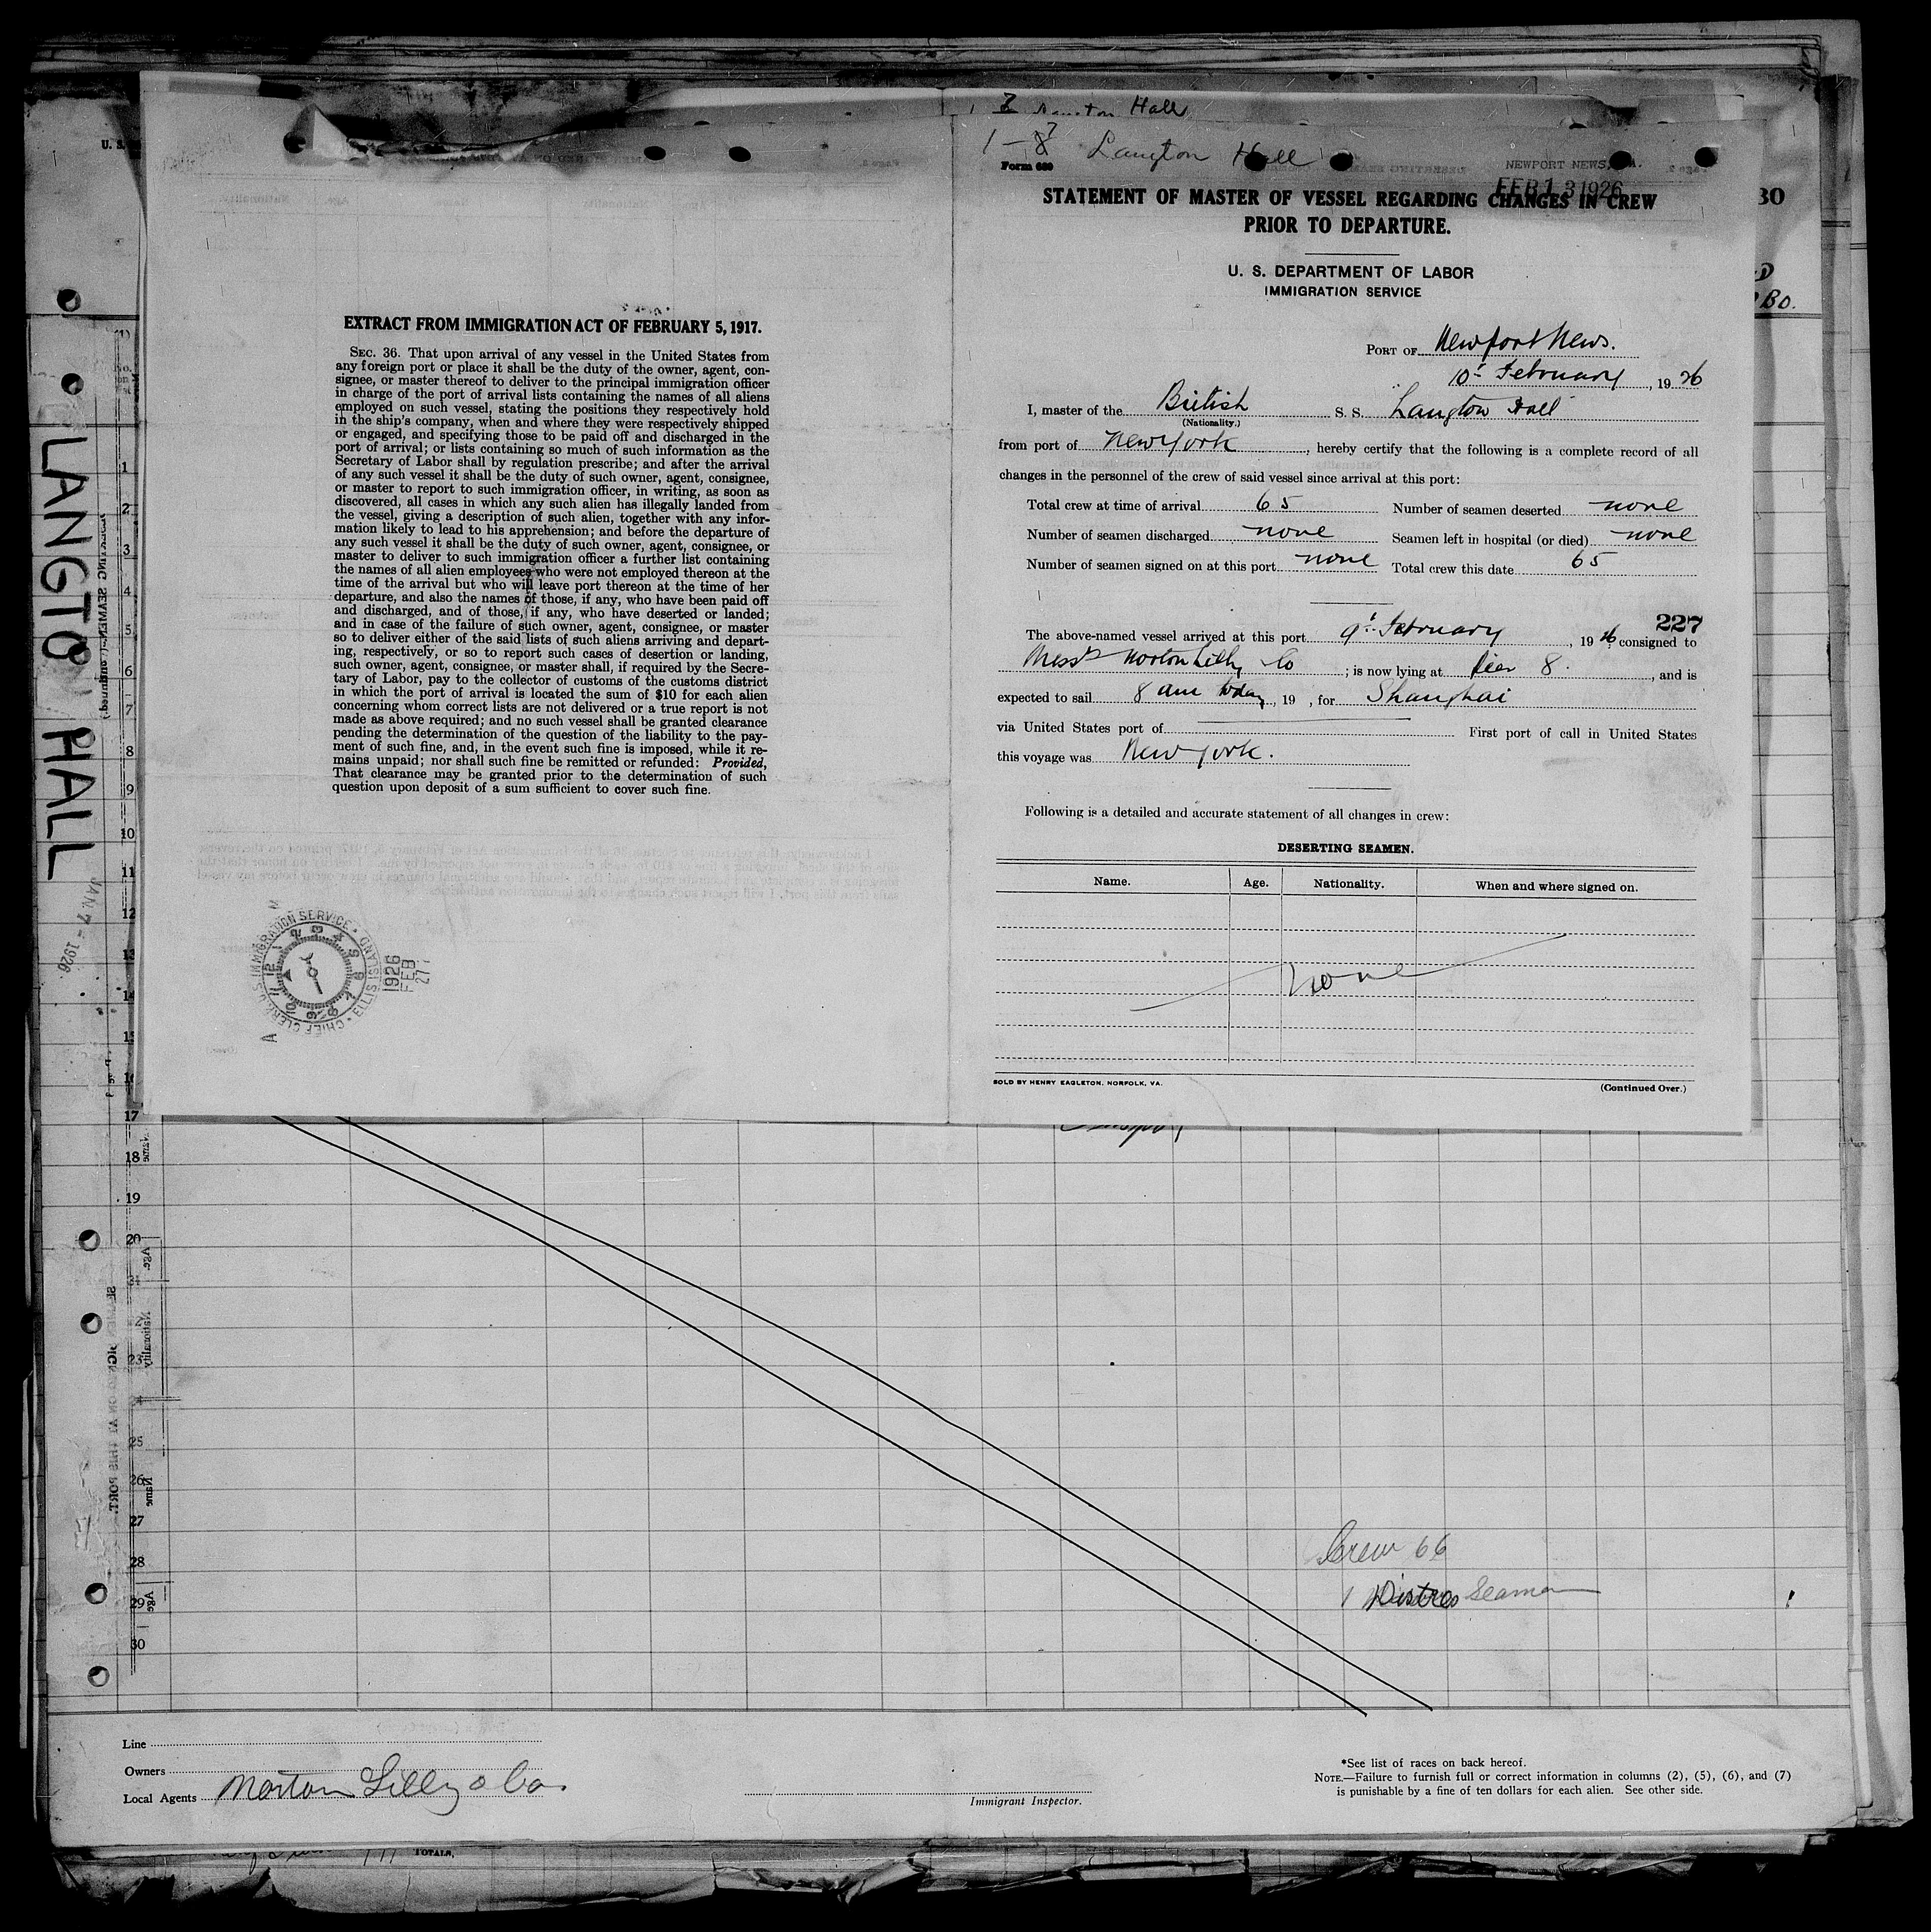 Langton Hall
1 - 7 Langton Hall
Form 689
NEWPORT NEWS, VA.
FEB 13 1926
STATEMENT OF MASTER OF VESSEL REGARDING CHANGES IN CREW
PRIOR TO DEPARTURE.
U. S. DEPARTMENT OF LABOR
IMMIGRATION SERVICE
PORT OF Newport News.
10th February, 1926
I, master of the British S. S. "Langton Hall"
(Nationality.)
from port of New York, hereby certify that the following is a complete record of all
changes in the personnel of the crew of said vessel since arrival at this port:
Total crew at time of arrival 65 Number of seamen deserted none
Number of seamen discharged none Seamen left in hospital (or died) none
Number of seamen signed on at this port none Total crew this date 65
227
The above-named vessel arrived at this port 9th February, 1926 consigned to
Messrs Norton Lilly Co; is now lying at pier 8., and is
expected to sail 8 am today, 19 , for Shanghai
via United States port of First port of call in United States
this voyage was New York.
Following is a detailed and accurate statement of all changes in crew:
DESERTING SEAMEN.
Name. Age. Nationality. When and where signed on.
none
SOLD BY HENRY EAGLETON, NORFOLK, VA. (Continued Over.)
EXTRACT FROM IMMIGRATION ACT OF FEBRUARY 5, 1917.
SEC. 36. That upon arrival of any vessel in the United States from
any foreign port or place it shall be the duty of the owner, agent, con-
signee, or master thereof to deliver to the principal immigration officer
in charge of the port of arrival lists containing the names of all aliens
employed on such vessel, stating the positions they respectively hold
in the ship's company, when and where they were respectively shipped
or engaged, and specifying those to be paid off and discharged in the
port of arrival; or lists containing so much of such information as the
Secretary of Labor shall by regulation prescribe; and after the arrival
of any such vessel it shall be the duty of such owner, agent, consignee,
or master to report to such immigration officer, in writing, as soon as
discovered, all cases in which any such alien has illegally landed from
the vessel, giving a description of such alien, together with any infor-
mation likely to lead to his apprehension; and before the departure of
any such vessel it shall be the duty of such owner, agent, consignee, or
master to deliver to such immigration officer a further list containing
the names of all alien employees who were not employed thereon at the
time of the arrival but who will leave port thereon at the time of her
departure, and also the names of those, if any, who have been paid off
and discharged, and of those, if any, who have deserted or landed;
and in case of the failure of such owner, agent, consignee, or master
so to deliver either of the said lists of such aliens arriving and depart-
ing, respectively, or so to report such cases of desertion or landing,
such owner, agent, consignee, or master shall, if required by the Secre-
tary of Labor, pay to the collector of customs of the customs district
in which the port of arrival is located the sum of $10 for each alien
concerning whom correct lists are not delivered or a true report is not
made as above required; and no such vessel shall be granted clearance
pending the determination of the question of the liability to the pay-
ment of such fine, and, in the event such fine is imposed, while it re-
mains unpaid; nor shall such fine be remitted or refunded: Provided,
That clearance may be granted prior to the determination of such
question upon deposit of a sum sufficient to cover such fine.
CHIEF CLERK U. S. IMMIGRATION SERVICE ELLIS ISLAND
1926
FEB
27
LANGTO HALL
JAN 7 - 1926
1
2
3
4
5
6
7
8
9
10
11
12
13
14
15
16
17
18
19
20
23
25
26
27
28
29
30
Crew 66
1 Distres Seaman
Line
Owners
Local Agents Norton Lilly & Co.
Immigrant Inspector.
*See list of races on back hereof.
NOTE.—Failure to furnish full or correct information in columns (2), (5), (6), and (7)
is punishable by a fine of ten dollars for each alien. See other side.
TOTALS,